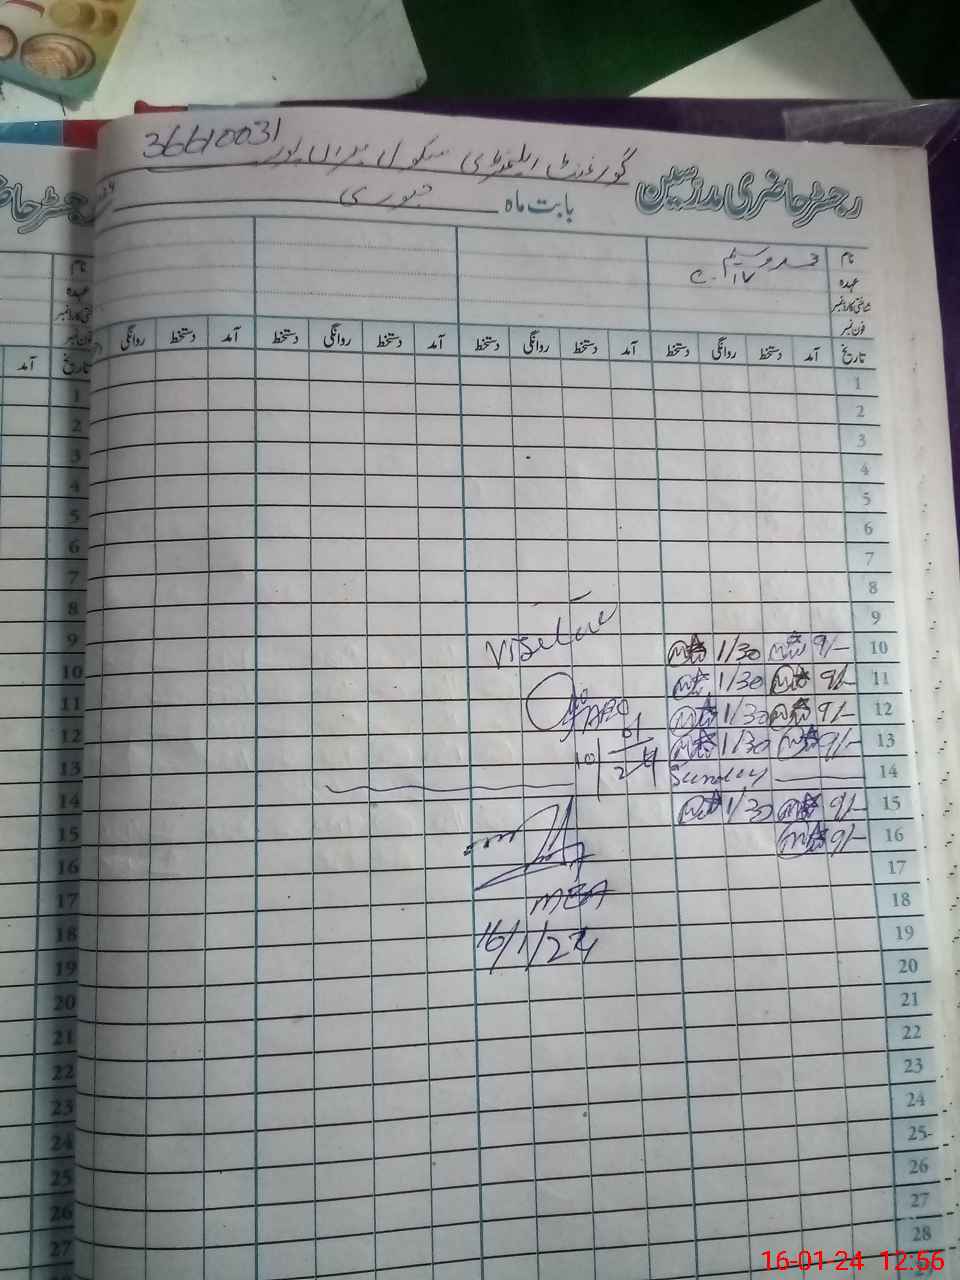 36610031
گورنمنٹ ایلیمنٹری سکول میراں پور
رجسٹر حاضری مدرسین
بابت ماہ جنوری
نام محمد وسیم
عہدہ C.IV
فون نمبر
تاریخ آمد دستخط روانگی دستخط آمد دستخط روانگی دستخط آمد دستخط روانگی دستخط آمد دستخط روانگی
1
2
3
4
5
6
7
8
9
10 9/- 1/30
11 9/- 1/30
12 9/- 1/30
13 9/- 1/30
14 Sunday
15 9/- 1/30
16 9/-
17
18
19
20
21
22
23
24
25
26
27
28
29
AEO
10/01/24
MEA
16/1/24
رجسٹر حاضری
نام
عہدہ
فون نمبر
تاریخ آمد
1
2
3
4
5
6
7
8
9
10
11
12
13
14
15
16
17
18
19
20
21
22
23
24
25
26
27
16-01-24 12:56